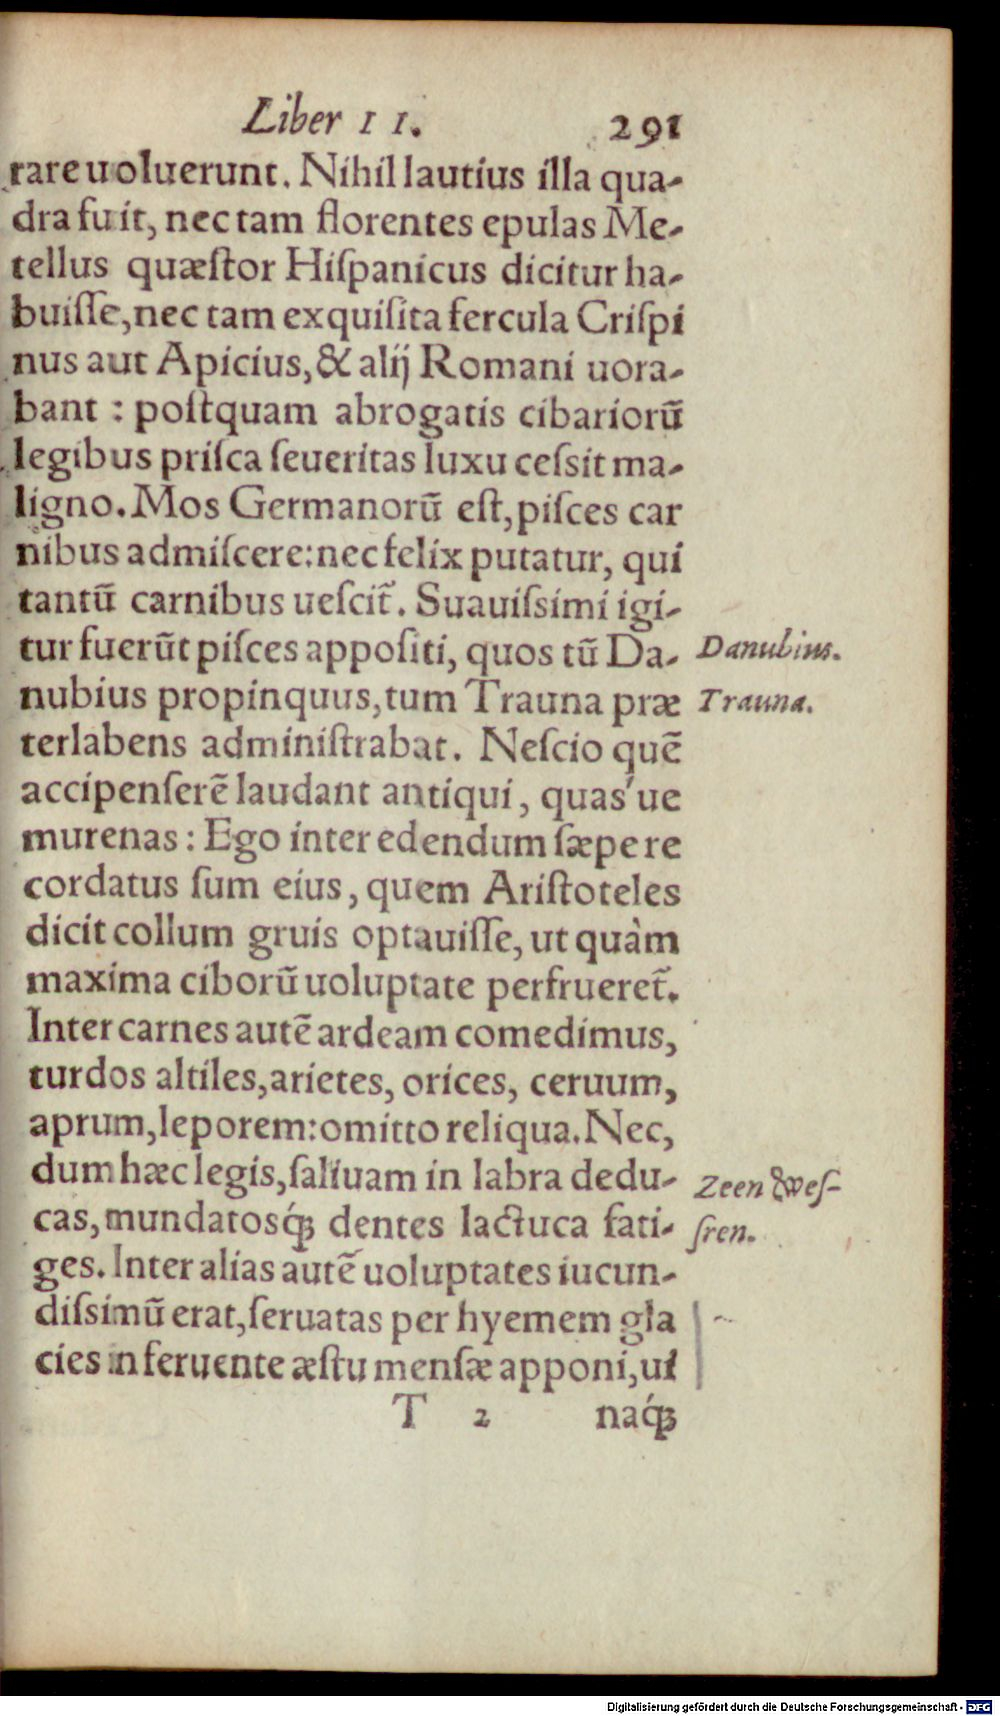 Liber II. 291
rare uoluerunt. Nihil lautius illa qua-
dra fuit, nec tam florentes epulas Me-
tellus quæstor Hiſpanicus dicitur ha-
buiſſe, nec tam exquiſita fercula Criſpi
nus aut Apicius, & alij Romani uora-
bant : poſtquam abrogatis cibariorũ
legibus priſca ſeueritas luxu ceſsit ma-
ligno. Mos Germanorũ eſt, piſces car
nibus admiſcere: nec felix putatur, qui
tantũ carnibus ueſcit᷑. Suauiſsimi igi-
tur fuerũt piſces appoſiti, quos tũ Da- Danubius.
nubius propinquus, tum Trauna præ Trauna.
terlabens adminiſtrabat. Neſcio quẽ
accipenſerẽ laudant antiqui, quas'ue
murenas : Ego inter edendum ſæpe re
cordatus ſum eius, quem Ariſtoteles
dicit collum gruis optauiſſe, ut quàm
maxima ciborũ uoluptate perfrueret᷑.
Inter carnes autẽ ardeam comedimus,
turdos altiles, arietes, orices, ceruum,
aprum, leporem: omitto reliqua. Nec,
dum hæc legis, ſaliuam in labra dedu- Zeen & weſ-
cas, mundatosq́ꝫ dentes lactuca fati- ſren.
ges. Inter alias autẽ uoluptates iucun-
diſsimũ erat, ſeruatas per hyemem gla
cies in feruente æſtu menſæ apponi, ui
T 2 naq́ꝫ
Digitalisierung gefördert durch die Deutsche Forschungsgemeinschaft - DFG